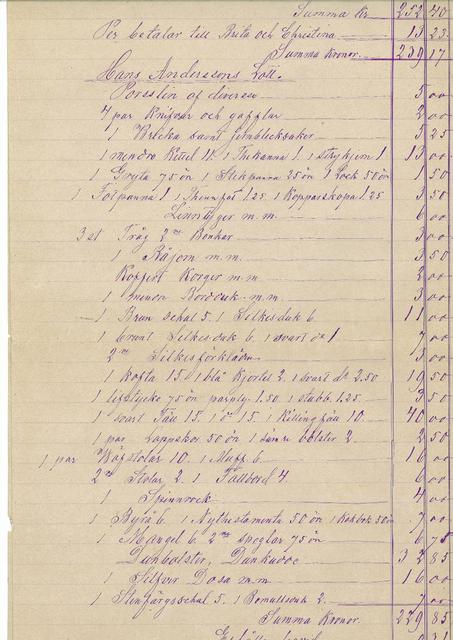 Summa Kr 252 40
Per betalar till Brita och Christina 13 23
Summa Kronor. 239 17
Hans Anderssons Lott.
Porslin af diverse 5 00
4 par Knifvar och gafflar 2 00
1 Bricka samt jernblecksaker 3 25
1 mindre Kittel 11. 1 Thekanna 1. 1 strykjern 1 13 00
1 Gryta 75 ön 1 Stekpanna 25 ön 1 Lock 50 ön 1 50
1 Fotpanna 1 1 Thennfat 1.25 1 Kopparskopa 1.25 3 50
m.m. 6 00
3 st Tråg 2ne Bänkar 3 00
1 m.m. 3 50
Koffert Korger m.m. 2 00
1 mindre m.m. 3 00
1 Brun schal 5. 1 Silkesduk 6 11 00
1 brunt Silkesduk 6. 1 svart do 1 7 00
2ne Silkesförkläden 3 00
1 kofta 15. 1 blå Kjortel 2. 1 svart do 2.50 19 50
1 lifstycke 75 ön paraply 1.50 1 stubb 1.25 3 50
1 svart 15. 1 do 15. 1 Killing 10 40 00
1 par Lappskor 50 ön 1 bolster 2. 2 50
1 par Väfstolar 10. 1 Muff 6 16 00
2ne Stolar 2. 1 Fällbord 4 6 00
1 Spinnrock 4 00
1 Byrå 6. 1 Nythestamente 50 ön 1 Kokbok 50 ön 7 00
1 Mangel 6. 2ne speglar 75 ön 6 75
Dunbolster, 32 85
1 Silfver Dosa m.m 16 00
1 Stenfärgsschal 5. 1 Bomullsduk 2. 7 00
Summa Kronor. 229 85